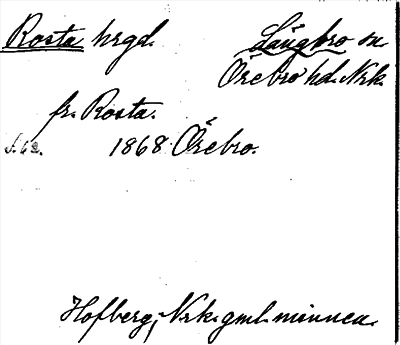 Rosta hrgd. Längbro sn.
Örebro hd. Nrk.
fr. Rosta.
s. 62. 1868 Örebro.
Hofberg, Nrk. gml. minnen.